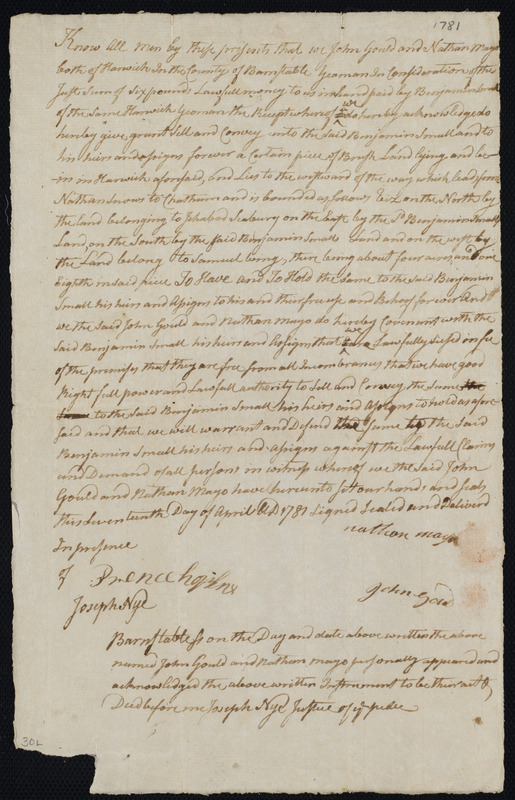 1781
Know All men by these presents that we John Gould and Nathan Mayo
both of Harwich In the County of Barnstable Yeoman In Consideration of the
Just Sum of Six pounds Lawfull money to us in hand paid by Benjamin Small
of the Same Harwich Yeoman the Receipt whereof we do hereby acknowledge do
hereby give, grant Sell and Convey unto the Said Benjamin Small and to
his heirs and assigns forever a Certain piece of Brush Land lying and be-
-in in Harwich aforesaid, and Lies to the westward of the way which leads from
Nathan Snows to Chatham and is bounded as follows Viz on the North by
the land belonging to Seabury on the East by the Sd Benjamin Small
Land, on the South by the Said Benjamin Small Land and on the west by
the Land belong to Samuel being, there being about four acres and one
Eighth in said piece To Have and To Hold the Same to the Said Benjamin
Small his heirs and Assigns to his and their free use and Behoof forever And
we the Said John Gould and Nathan mayo do hereby Covenant with the
Said Benjamin Small his heirs and Assigns, that we are Lawfully Seised in fee
of the premises that they are free from all Incombrances that we have good
Right full power and Lawfull authority to Sell and Convey the Same the
Same to the Said Benjamin Small his heirs and Assigns to hold as afore
Said and that we will warrant and Defend the Same to the Said
Benjamin Small his heirs and assigns against the Lawfull Claims
and Demand of all persons in witness whereof we the Said John
Gould and Nathan Mayo have hereunto Set our hands and Seals
this Seventeenth Day of April AD 1781 Signed Sealed and Delivered
nathan mayo
In presence
of
John Gold
Joseph Nye
Barnstable Ss on the Day and date above written the above
named John Gould and Nathan mayo personally appeared and
acknowledged the above written Instrument to be their act &
Deed before me Joseph Nye Justice of ye peace
30L